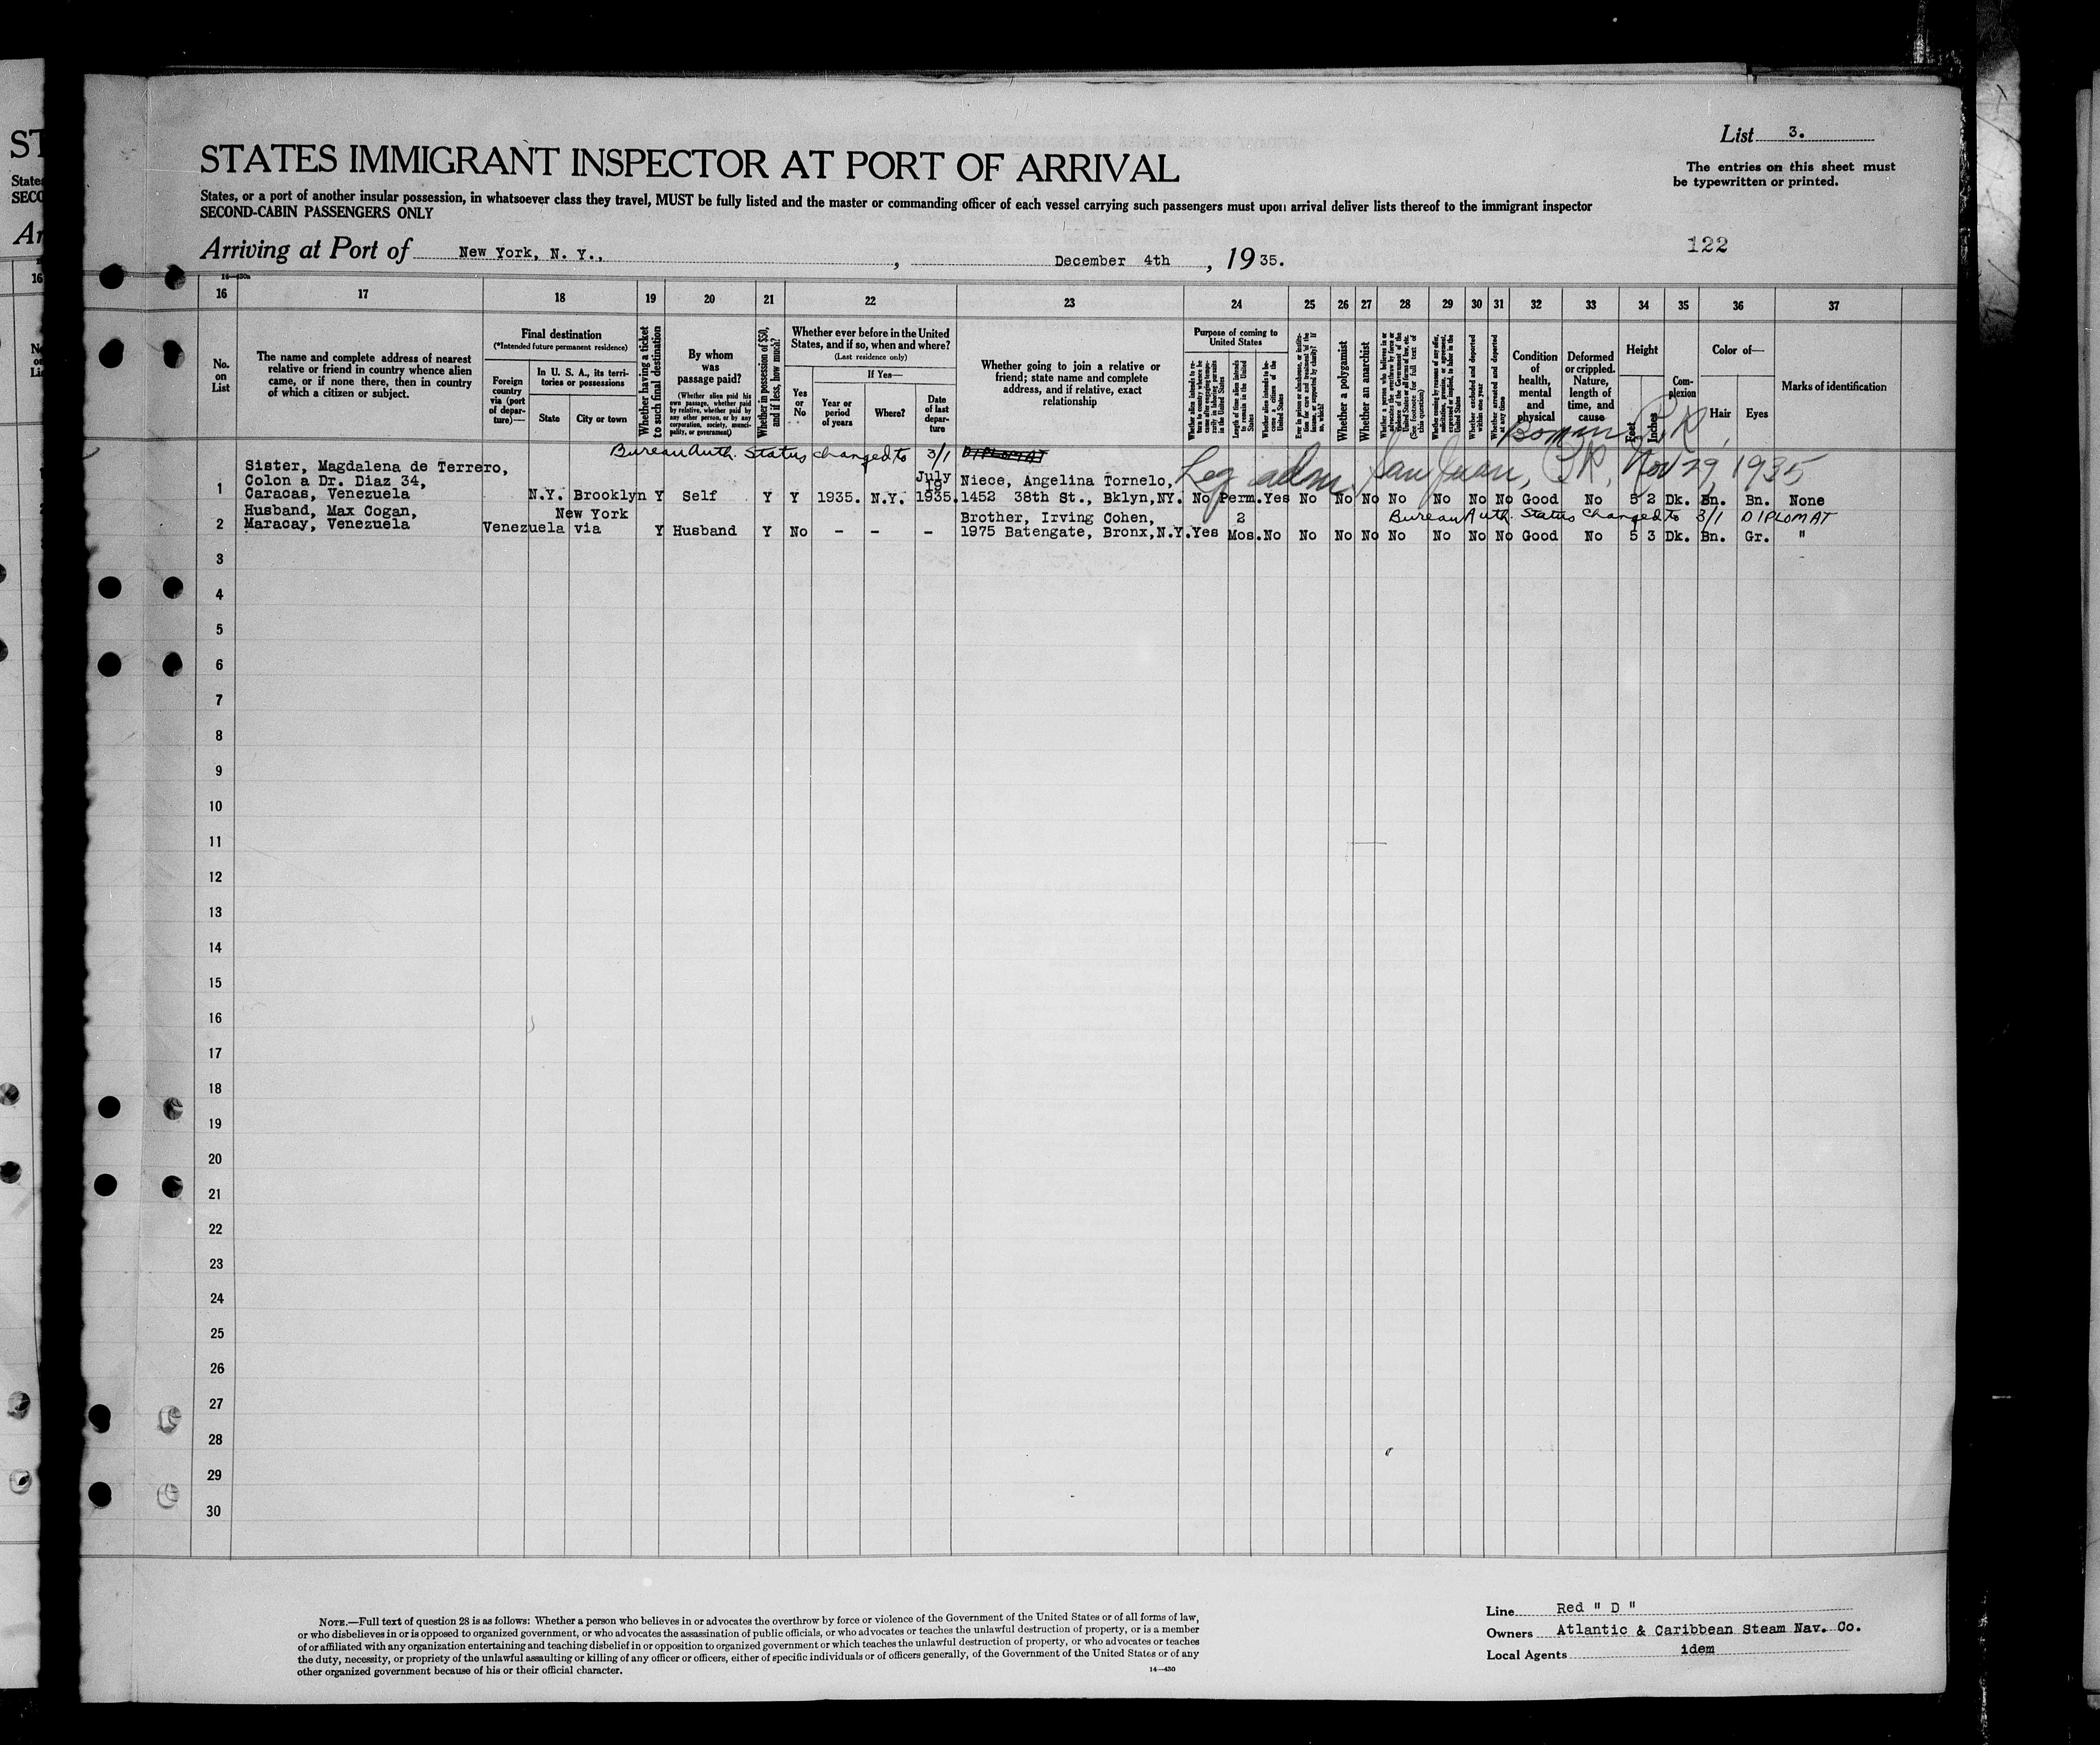 List 3.
STATES IMMIGRANT INSPECTOR AT PORT OF ARRIVAL
The entries on this sheet must
be typewritten or printed.
States, or a port of another insular possession, in whatsoever class they travel, MUST be fully listed and the master or commanding officer of each vessel carrying such passengers must upon arrival deliver lists thereof to the immigrant inspector
SECOND-CABIN PASSENGERS ONLY
Arriving at Port of New York, N. Y., , December 4th , 1935.
122
16 17 18 19 20 21 22 23 24 25 26 27 28 29 30 31 32 33 34 35 36 37
No. on List
The name and complete address of nearest
relative or friend in country whence alien
came, or if none there, then in country
of which a citizen or subject.
Final destination
(*Intended future permanent residence)
Foreign country via (port of departure)—
In U. S. A., its territories or possessions
State
City or town
Whether having a ticket to such final destination
By whom was passage paid?
(Whether alien paid his own passage, whether paid by relative, whether paid by any other person, or by any corporation, society, municipality, or government)
Whether in possession of $50, and if less, how much?
Whether ever before in the United
States, and if so, when and where?
(Last residence only)
Yes or No
If Yes—
Year or period of years
Where?
Date of last departure
Whether going to join a relative or
friend; state name and complete
address, and if relative, exact
relationship
Purpose of coming to United States
Whether alien intends to return to country whence he came after engaging temporarily in laboring pursuits in the United States
Length of time alien intends to remain in the United States
Whether alien intends to become a citizen of the United States
Whether a polygamist
Whether an anarchist
Condition of health, mental and physical
Deformed or crippled. Nature, length of time, and cause
Height
Feet
Inches
Complexion
Color of—
Hair
Eyes
Marks of identification
Bureau Auth. Status changed to 3/1 DIPLOMAT
Leg adm. San Juan, P.R, Nov 29, 1935
1 Sister, Magdalena de Terrero,
Colon a Dr. Diaz 34,
Caracas, Venezuela
N.Y. Brooklyn Y Self Y Y 1935. N.Y. July 19 1935.
Niece, Angelina Tornelo,
1452 38th St., Bklyn,NY. No Perm. Yes No No No No No No No Good No 5 2 Dk. Bn. Bn. None
Bureau Auth. Status Changed to 3/1 DIPLOMAT
2 Husband, Max Cogan,
Maracay, Venezuela
New York
Venezuela via Y Husband Y No - - -
Brother, Irving Cohen,
1975 Batengate, Bronx,N.Y. Yes 2 Mos. No No No No No No No No Good No 5 3 Dk. Bn. Gr. "
3
4
5
6
7
8
9
10
11
12
13
14
15
16
17
18
19
20
21
22
23
24
25
26
27
28
29
30
NOTE.—Full text of question 28 is as follows: Whether a person who believes in or advocates the overthrow by force or violence of the Government of the United States or of all forms of law,
or who disbelieves in or is opposed to organized government, or who advocates the assassination of public officials, or who advocates or teaches the unlawful destruction of property, or is a member
of or affiliated with any organization entertaining and teaching disbelief in or opposition to organized government or which teaches the unlawful destruction of property, or who advocates or teaches
the duty, necessity, or propriety of the unlawful assaulting or killing of any officer or officers, either of specific individuals or of officers generally, of the Government of the United States or of any
other organized government because of his or their official character.
14—430
Line Red " D "
Owners Atlantic & Caribbean Steam Nav. Co.
Local Agents idem